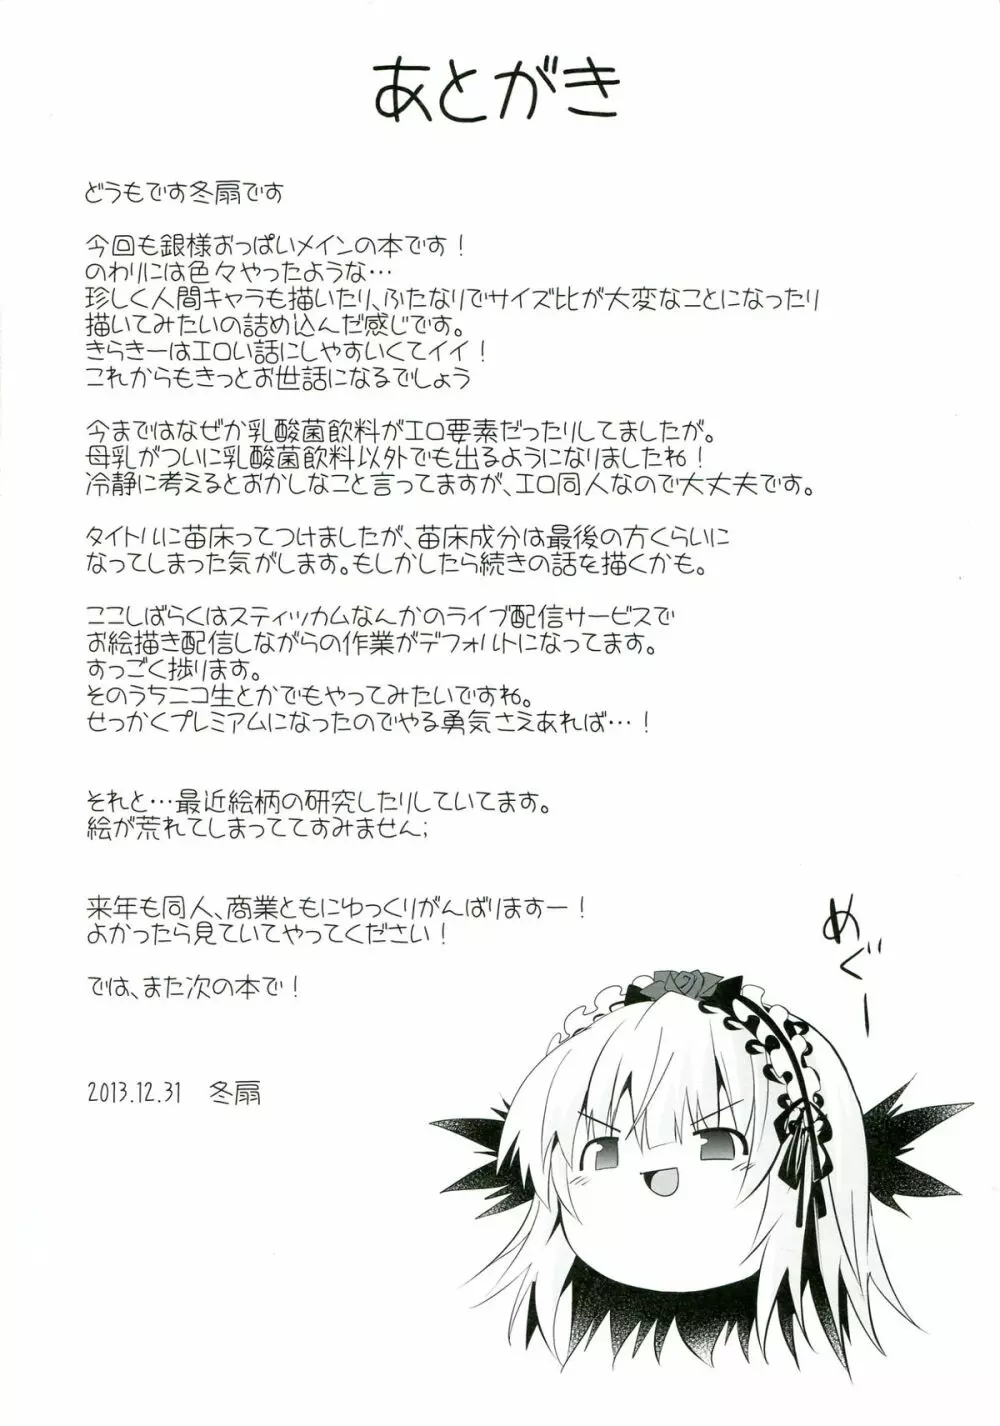 あとがき
どうもです冬扇です
今回も銀様おっぱいメインの本です!
のわりには色々やったような…
珍しく人間キャラも描いたり、ふたなりでサイズ比が大変なことになったり
描いてみたいの詰め込んだ感じです。
きらきーはエロい話にしやすいくてイイ!
これからもきっとお世話になるでしょう
今まではなぜか乳酸菌飲料がエロ要素だったりしてましたが。
母乳がついに乳酸菌飲料以外でも出るようになりましたね!
冷静に考えるとおかしなこと言ってますが、エロ同人なので大丈夫です。
タイトルに苗床ってつけましたが、苗床成分は最後の方くらいに
なってしまった気がします。もしかしたら続きの話を描くかも。
ここしばらくはスティッカムなんかのライブ配信サービスで
お絵描き配信しながらの作業がデフォルトになってます。
すっごく捗ります。
そのうちニコ生とかでもやってみたいですね。
せっかくプレミアムになったのでやる勇気さえあれば…!
それと…最近絵柄の研究したりしていてます。
絵が荒れてしまっててすみません;
来年も同人、商業ともにゆっくりがんばりますー!
よかったら見ていてやってください!
では、また次の本で!
2013.12.31 冬扇
めぐー